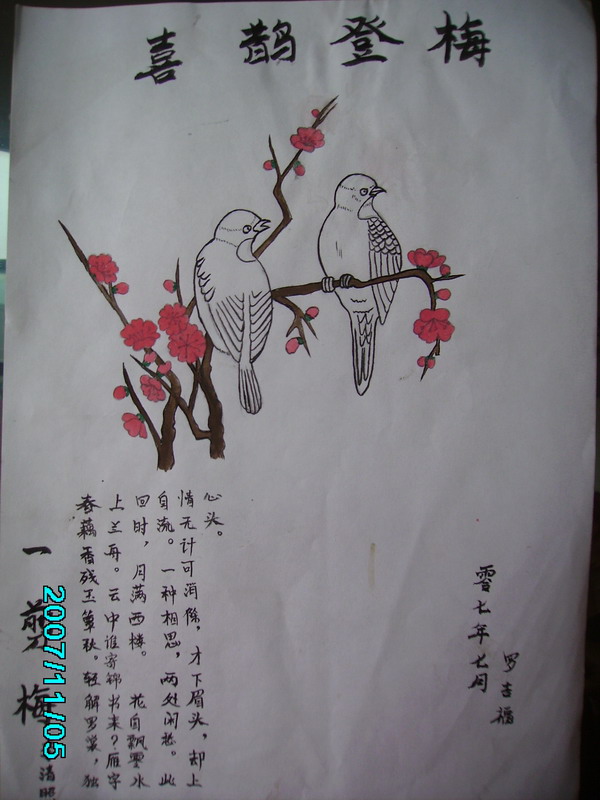 喜鹊登梅
一剪梅
清照
春藕香残玉簟秋。轻解罗裳,独
上兰舟。云中谁寄锦书来?雁字
回时,月满西楼。 花自飘零水
自流。一种相思,两处闲愁。此
情无计可消除,才下眉头,却上
心头。
零七年七月
罗吉福
2007/11/05